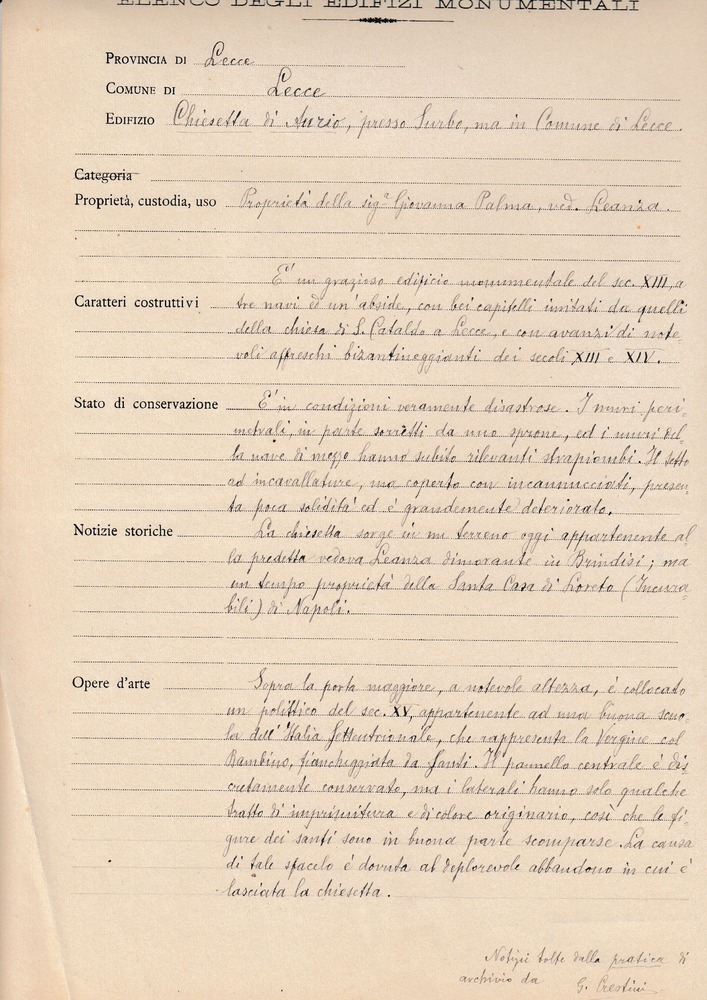 ELENCO DEGLI EDIFIZI MONUMENTALI
PROVINCIA DI Lecce
COMUNE DI Lecce
EDIFIZIO Chiesetta di Aurio, presso Surbo, ma in Comune di Lecce.
Categoria
Proprietà, custodia, uso Proprietà della sigª Giovanna Palma, ved. Leanza.
E' un grazioso edificio monumentale del sec. XIII, a
Caratteri costruttivi tre navi ed un'abside, con bei capitelli imitati da quelli
della chiesa di S. Cataldo a Lecce, e con avanzi di note-
voli affreschi bizantineggianti dei secoli XIII e XIV.
Stato di conservazione E' in condizioni veramente disastrose. I muri peri-
metrali, in parte sorretti da uno sprone, ed i muri del-
la nave di mezzo hanno subito rilevanti strapiombi. Il tetto
ad incavallature, ma coperto con incannucciati, presen-
ta poca solidità ed è grandemente deteriorato.
Notizie storiche La chiesetta sorge in un terreno oggi appartenente al
la predetta vedova Leanza dimorante in Brindisi; ma
un tempo proprietà della Santa Casa di Loreto (Incura-
bili) di Napoli.
Opere d'arte Sopra la porta maggiore, a notevole altezza, è collocato
un polittico del sec. XV, appartenente ad una buona scuo-
la dell'Italia Settentrionale, che rappresenta la Vergine col
Bambino, fiancheggiata da Santi. Il pannello centrale è dis-
cretamente conservato, ma i laterali hanno solo qualche
tratto di imprimitura e di colore originario, così che le fi-
gure dei santi sono in buona parte scomparse. La causa
di tale sfacelo è dovuta al deplorevole abbandono in cui è
lasciata la chiesetta.
Notizie tolte dalla pratica di
archivio da G.